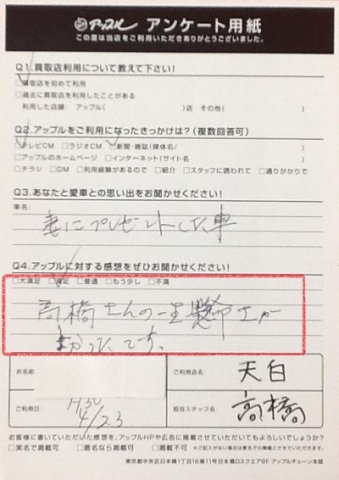 アップル アンケート用紙
この度は当店をご利用いただきありがとうございました。
Q1.買取店利用について教えて下さい!
□買取店を初めて利用
□過去に買取店を利用したことがある
利用した店舗： アップル( )店 その他( )
Q2.アップルをご利用になったきっかけは?(複数回答可)
□テレビCM □ラジオCM □新聞・雑誌(媒体名/ )
□アップルのホームページ □インターネット(サイト名 )
□チラシ □DM □利用経験があるので □紹介 □スタッフに誘われて □通りがかりで
Q3.あなたと愛車との思い出をお聞かせください!
車名:
妻にプレゼントした車
Q4.アップルに対する感想をぜひお聞かせください!
□大満足 □満足 □普通 □もう少し □不満
高橋さんの一生懸命さが
よかったです。
お名前
ご利用店名: 天白
ご利用日: H30 4/23
担当スタッフ名: 高橋
お客様に書いていただいた感想を、アップルHPや広告に掲載させていただいてもよろしいでしょうか?
□実名で掲載可 □匿名なら掲載可 □掲載不可 ※ご記入がない場合は匿名での掲載とさせていただきます。